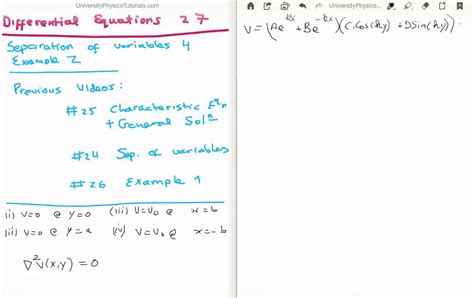 UniversityPhysicsTutorials.com
Differential Equations 27
Separation of variables 4
Example 2
Previous Videos:
#25 Characteristic Eqn
+ General Soln
#24 Sep. of variables
#26 Example 1
(i) V=0 @ y=0 (iii) V=V₀ @ x=b
(ii) V=0 @ y=a (iv) V=V₀ @ x=-b
∇²V(x,y)=0
UniversityPhysics...
V=(Ae^{kx} + Be^{-kx})(C.cos(ky) + DSin(ky))